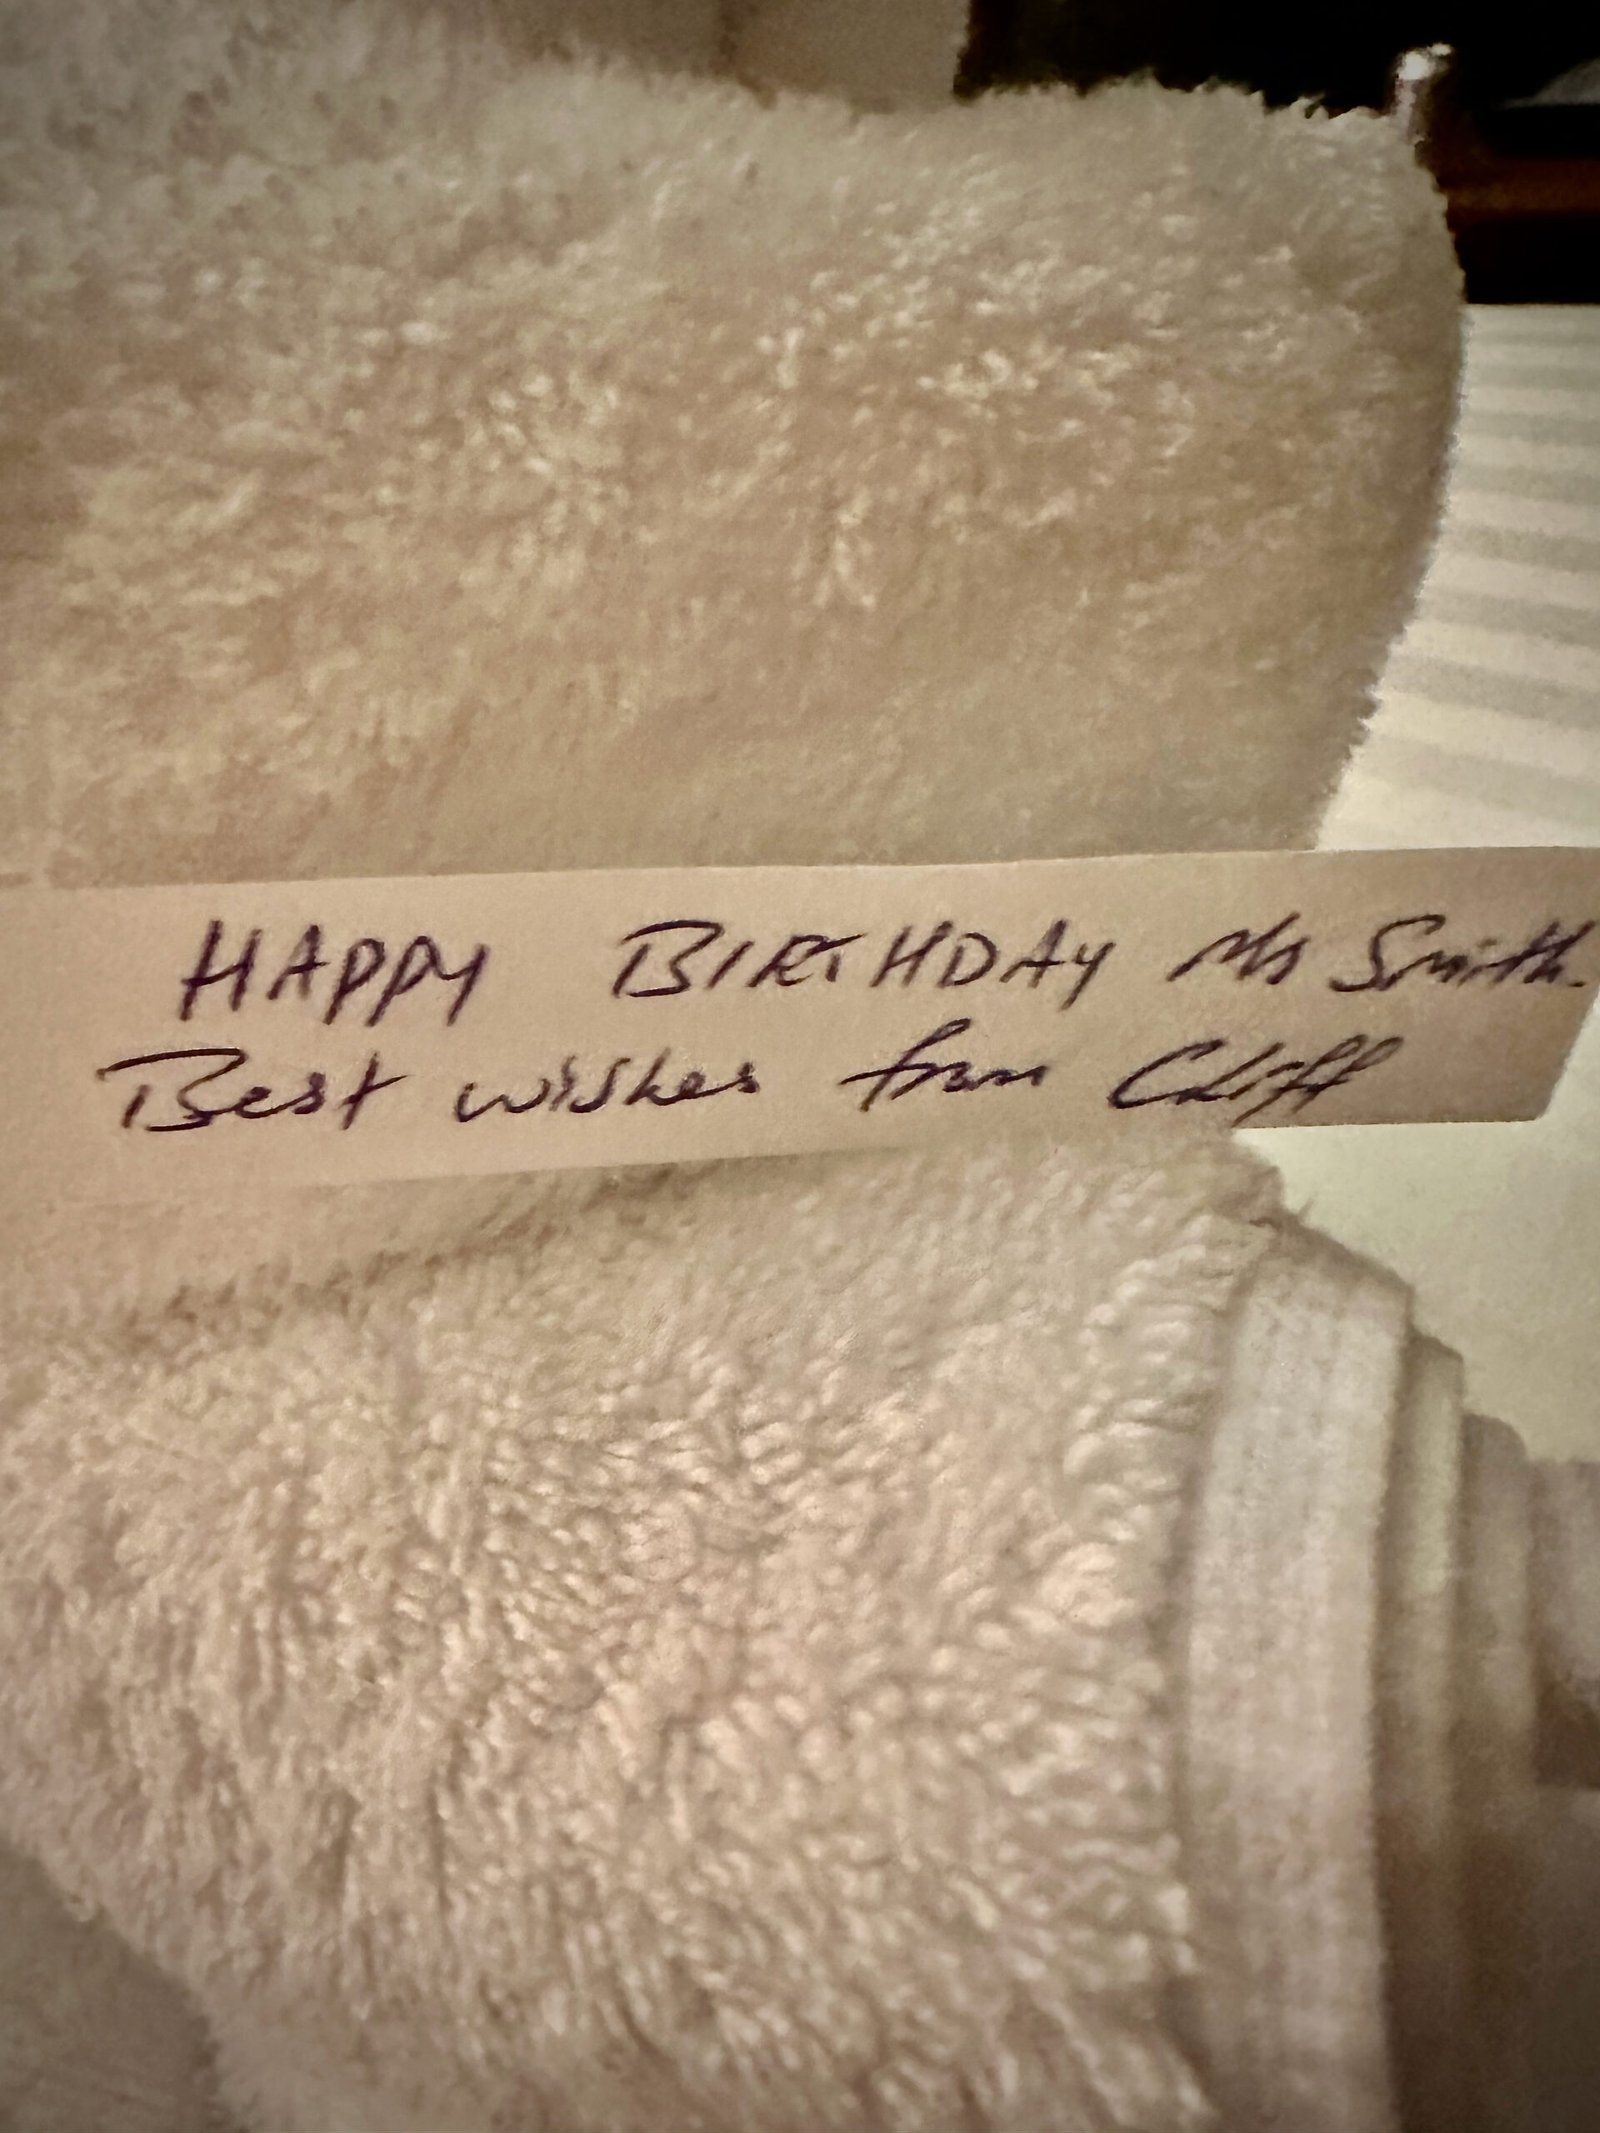 HAPPY BIRTHDAY Ms Smith.
Best wishes from Cliff